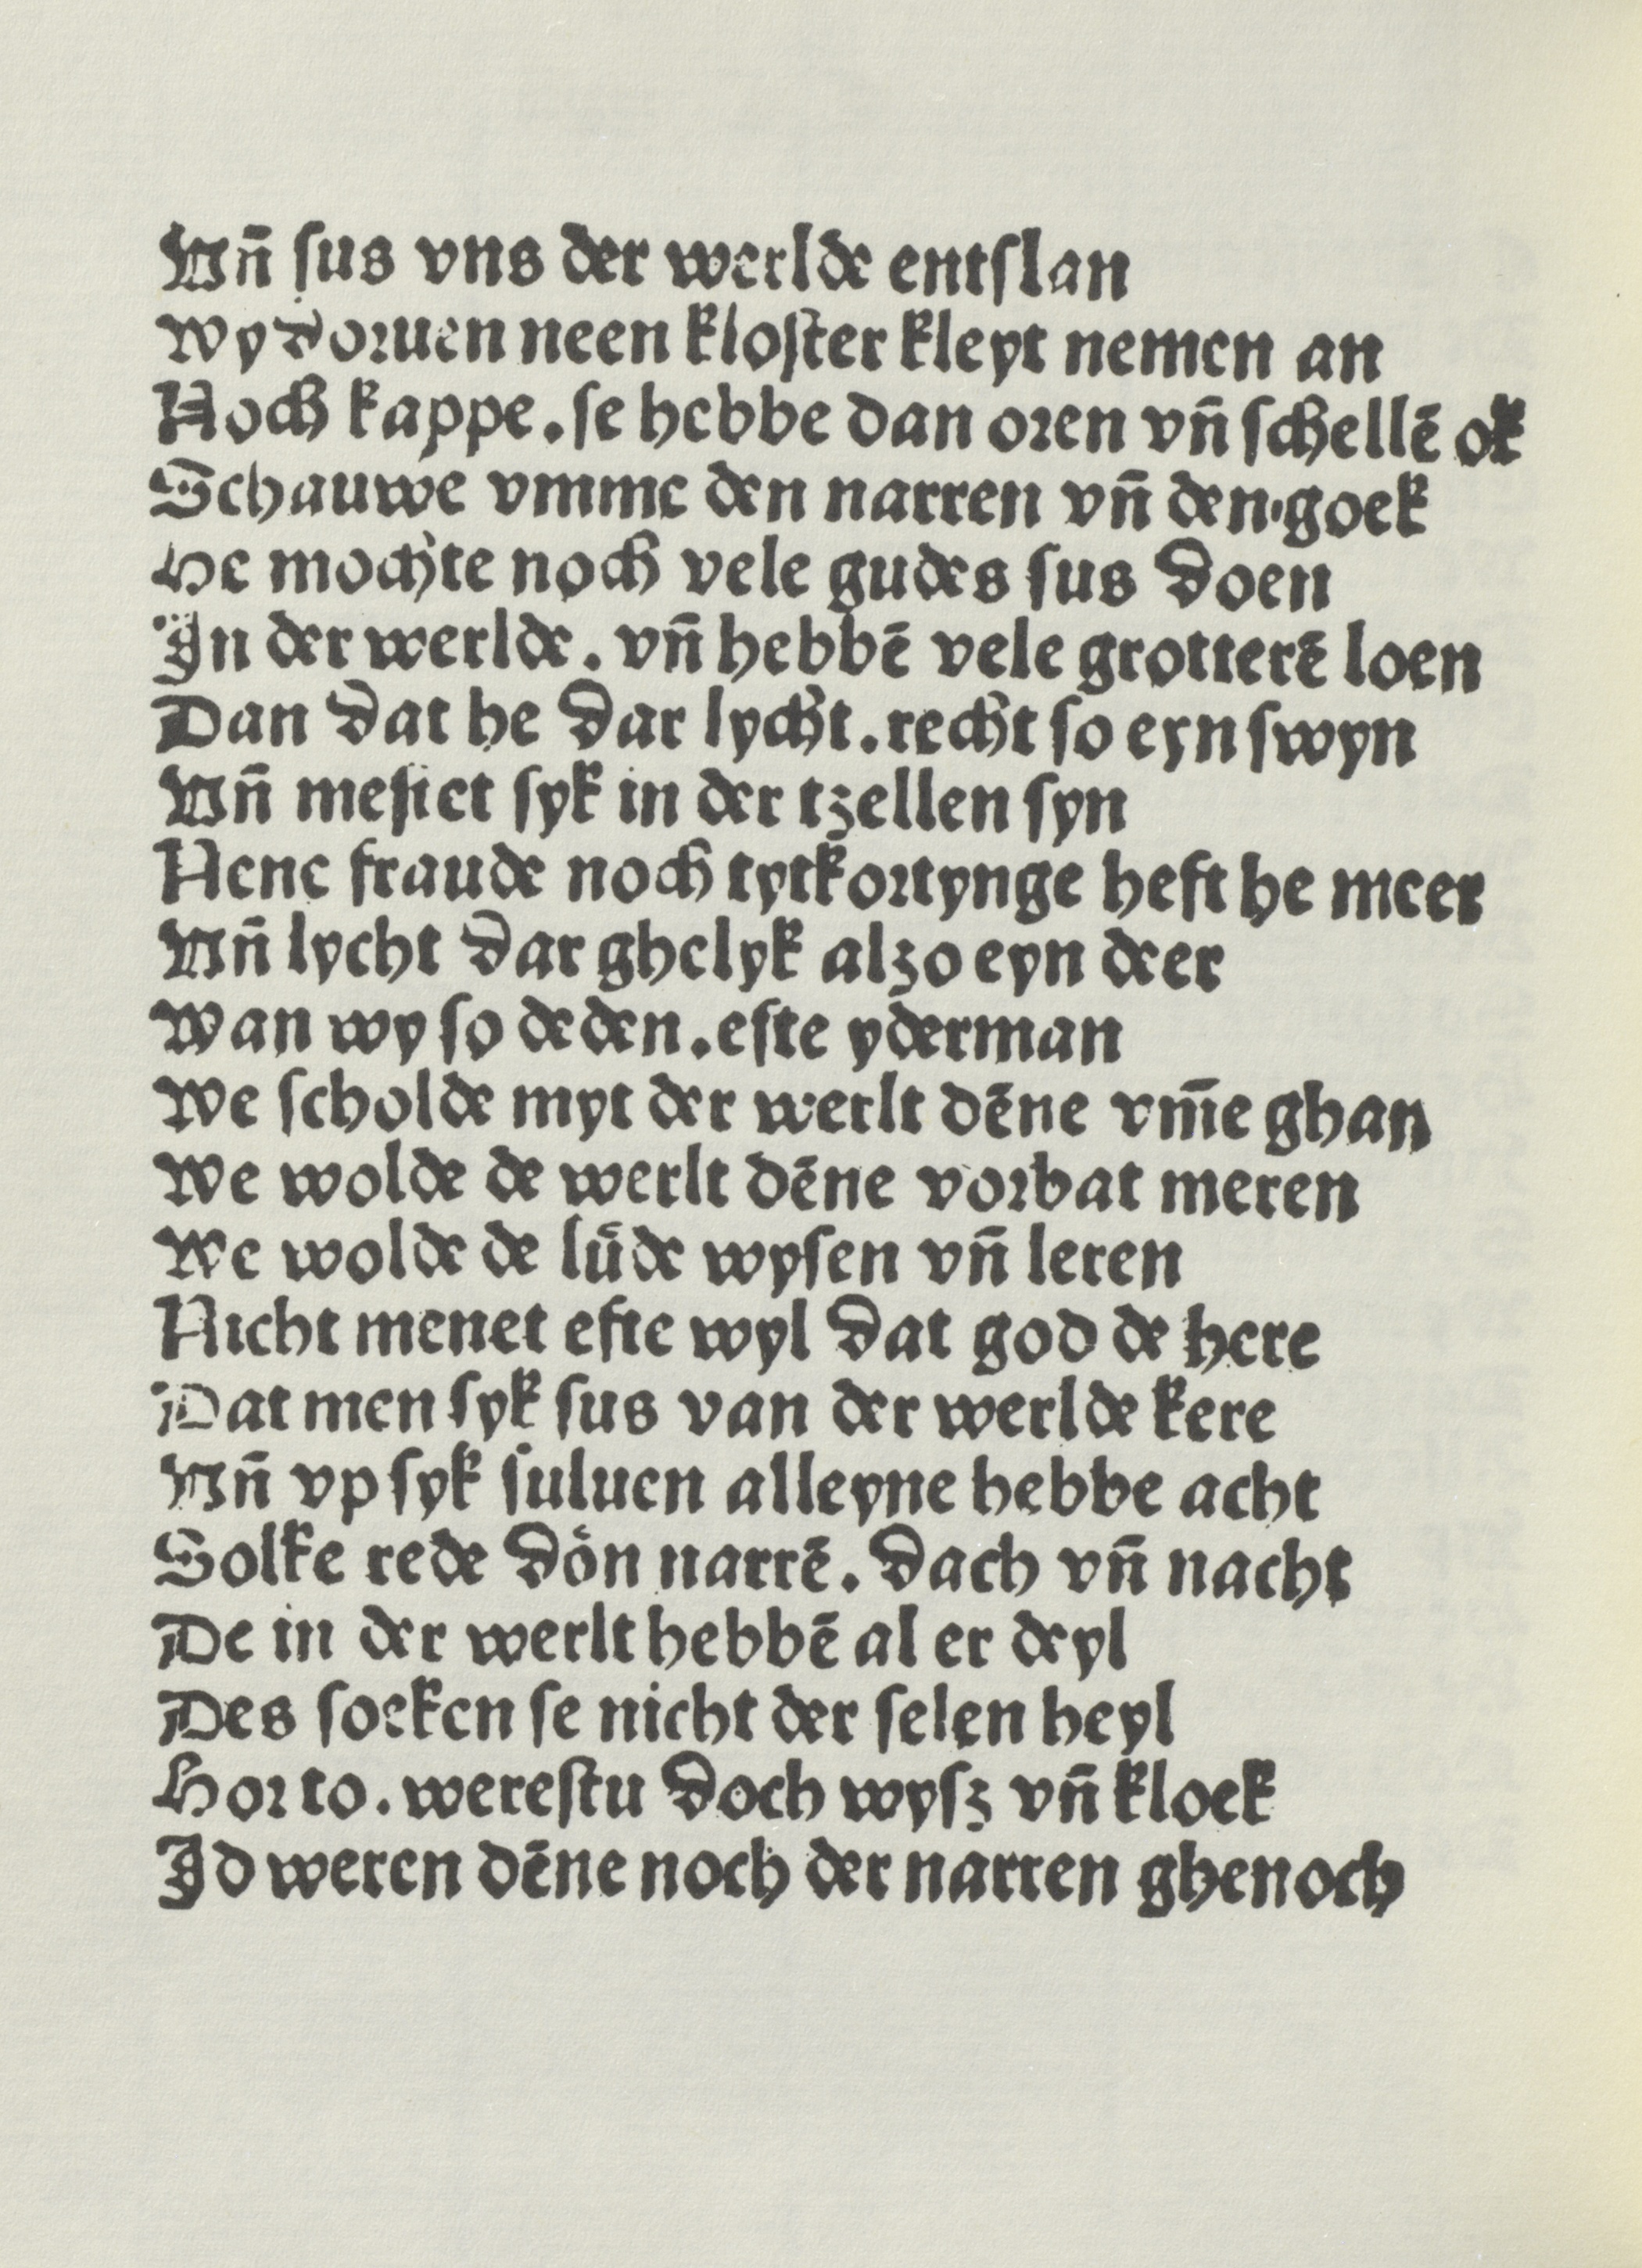 Vn̄ ſus vns der werlde entſlan
Wy doruen neen kloſter kleyt nemen an
Noch kappe. ſe hebbe dan oren vn̄ ſchellē ok
Schauwe vmme den narren vn̄ den goek
He mochte noch vele gudes ſus doen
In der werlde. vn̄ hebbē vele grotterē loen
Dan dat he dar lycht. recht ſo eyn ſwyn
Vn̄ meſtet ſyk in der tzellen ſyn
Nene fraude noch tytkortynge heft he meer
Vn̄ lycht dar ghelyk alzo eyn deer
Wan wy ſo deden. efte yderman
We ſcholde myt der werlt dēne vm̄e ghan
We wolde de werlt dēne vorbat meren
We wolde de luͤde wyſen vn̄ leren
Nicht menet efte wyl dat god de here
Dat men ſyk ſus van der werlde kere
Vn̄ vp ſyk ſuͤluen alleyne hebbe acht
Solke rede doͤn narrē. dach vn̄ nacht
De in der werlt hebbē al er deyl
Des ſoeken ſe nicht der ſelen heyl
Hor to. wereſtu doch wyſz vn̄ kloek
Id weren dēne noch der narren ghenoch